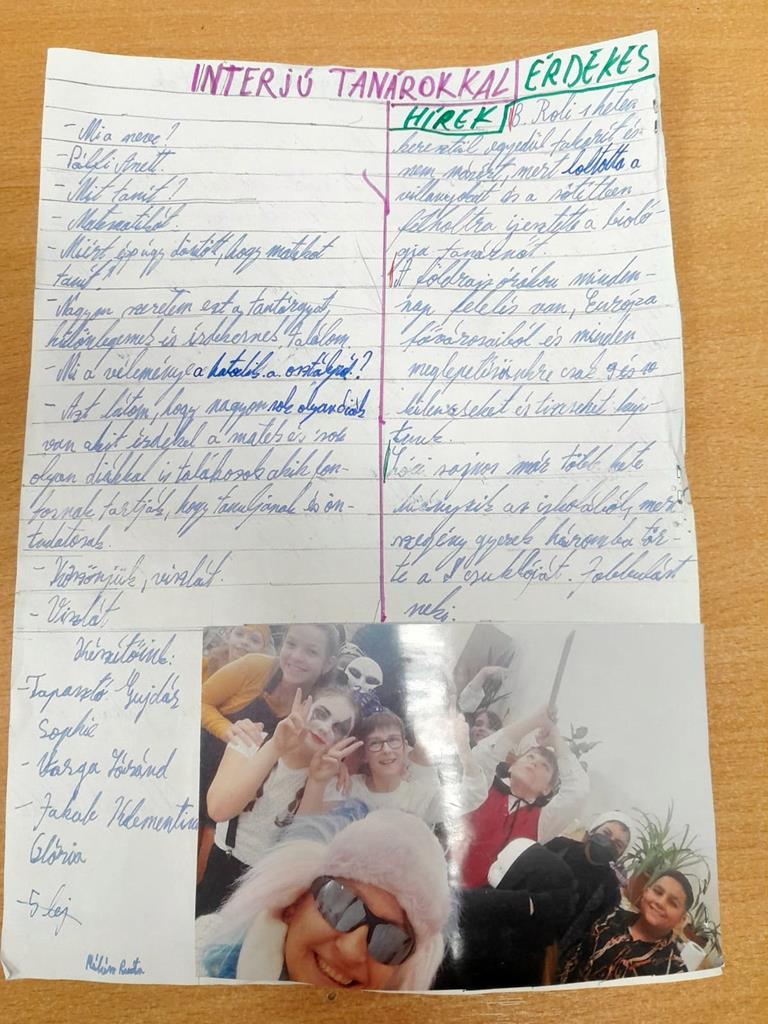 INTERJÚ TANÁROKKAL
- Mi a neve?
- Pálfi Anett.
- Mit tanít?
- Matematikát.
- Miért épp úgy döntött, hogy matekot
tanít?
- Nagyon szeretem ezt a tantárgyat,
különlegesnek és érdekesnek találom.
- Mi a véleménye a hatodik a osztályról?
- Azt látom, hogy nagyon sok olyan diák
van akit érdekel a matek és sok
olyan diákkal is találkozok akik fon-
tosnak tartják, hogy tanuljanak és ön-
tudatosak.
- Köszönjük, viszlát.
- Viszlát
ÉRDEKES
HÍREK
B. Roli 1 héten
keresztül egyedül takarít és
nem másért, mert loltotta a
villanyokat és a sötétben
felholtra ijesztette a bioló-
gia tanárnőt.
A földrajz órákon minden-
nap felelés van, Európa
fővárosaiból és minden
meglepetésünkre csak 9 és 10
kilenceseket és tizeseket kap-
tunk.
Lóci sajnos már több hete
hiányzik az iskolából, mert
szegény gyerek háromba tör-
te a csuklóját. Jobbulást
neki.
Készítőink:
- Tapasztó Gujdár
Sophie
- Varga Lóránd
- Jakab Klementina
Glória
- 5 lej